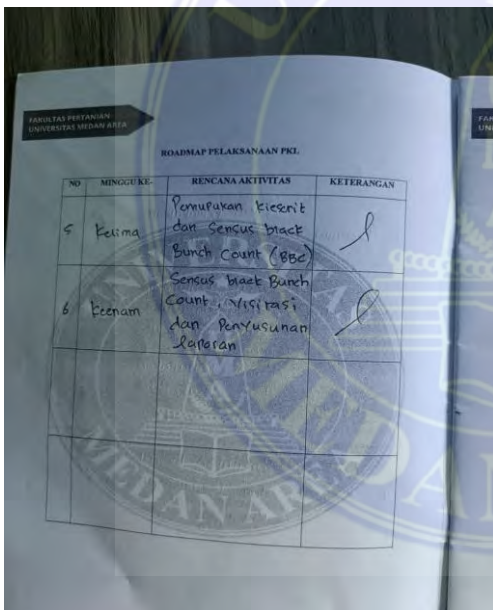 FAKULTAS PERTANIAN
UNIVERSITAS MEDAN AREA
ROADMAP PELAKSANAAN PKL
NO MINGGU KE- RENCANA AKTIVITAS KETERANGAN
5 Kelima Pemupukan kieserit
dan Sensus black
Bunch Count (BBC)
6 Keenam Sensus black Bunch
Count, Visitasi
dan Penyusunan
laporan
MEDAN AREA